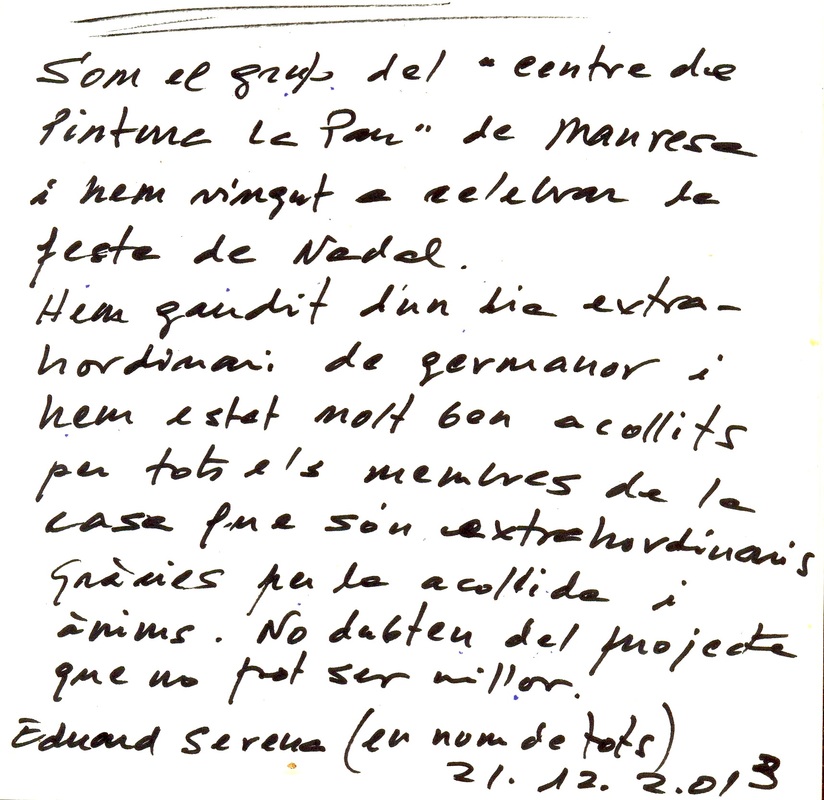 Som el grup del "centre de
Pintura La Pau" de Manresa
i hem vingut a celebrar la
festa de Nadal.
Hem gaudit d'un dia extra-
hordinari de germanor i
hem estat molt ben acollits
per tots els membres de la
casa que són extrahordinaris
Gràcies per la acollida i
ànims. No dubteu del projecte
que no pot ser millor.
Eduard Serena (en nom de tots)
21. 12. 2.013